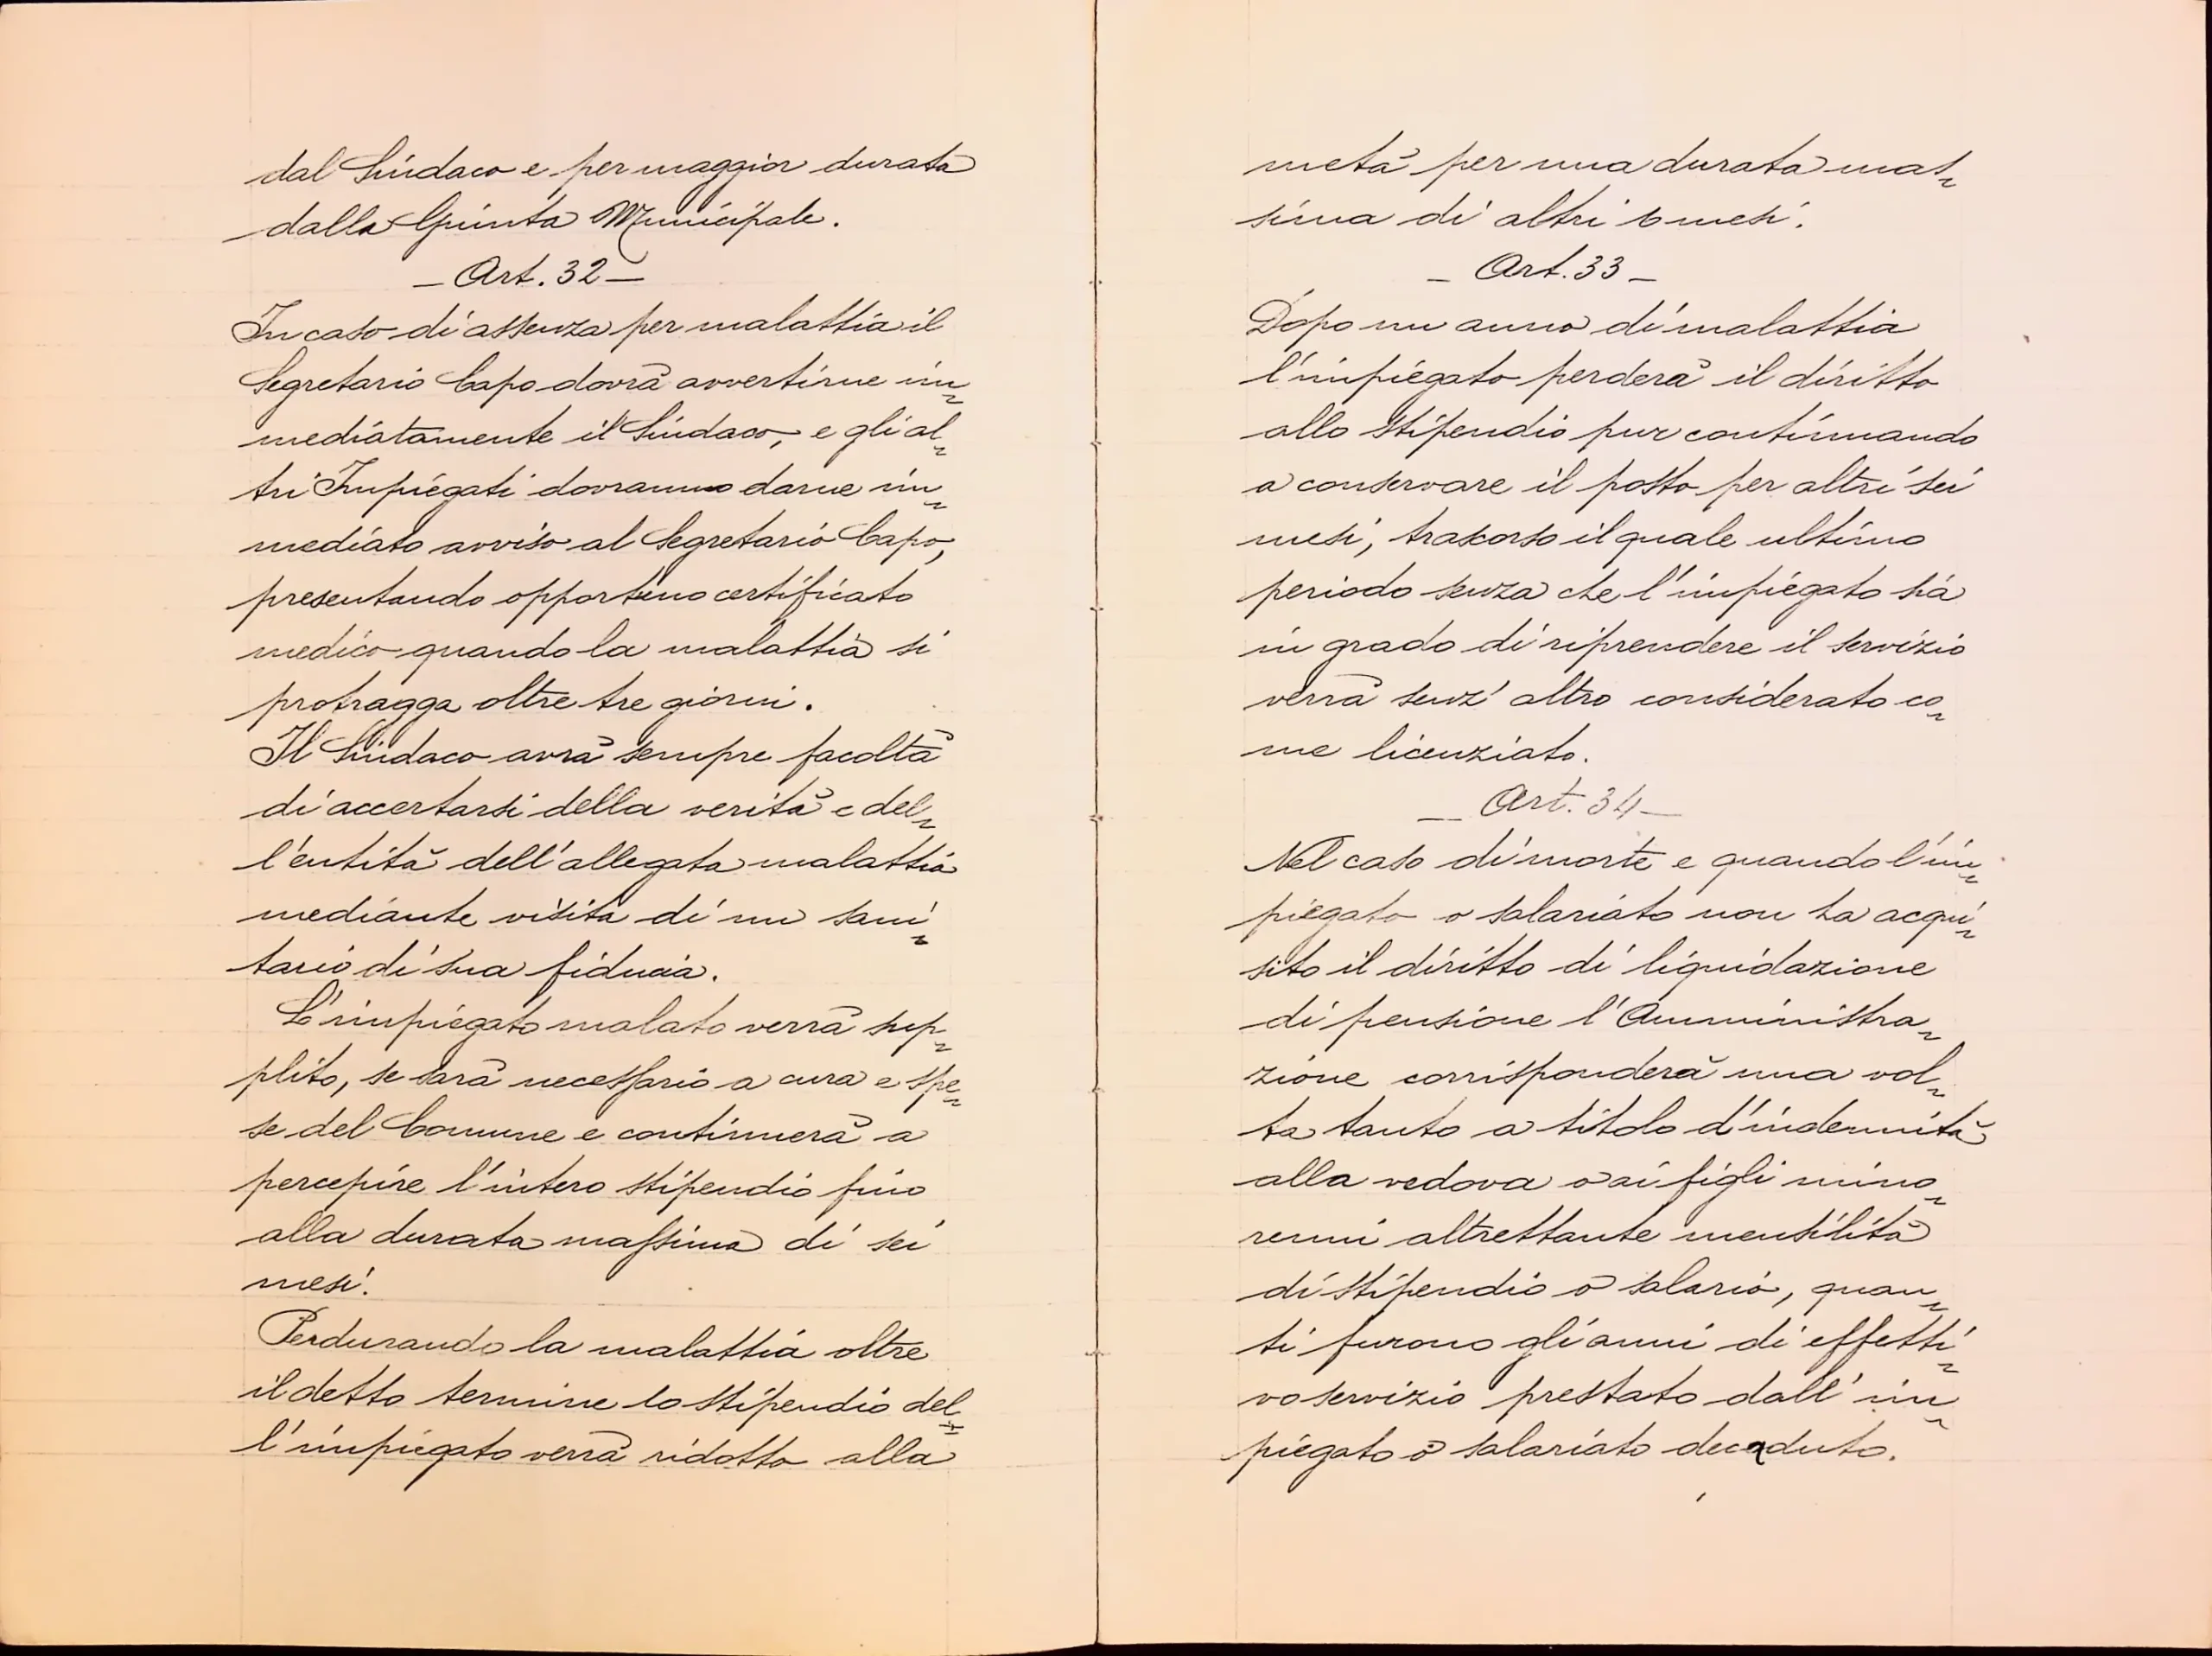 dal Sindaco e per maggior durata
dalla Giunta Municipale.
- Art. 32 -
In caso di assenza per malattia il
Segretario Capo dovrà avvertirne im-
mediatamente il Sindaco, e gli al-
tri Impiegati dovranno darne im-
mediato avviso al Segretario Capo,
presentando opportuno certificato
medico quando la malattia si
protragga oltre tre giorni.
Il Sindaco avrà sempre facoltà
di accertarsi della verità e del-
l'entità dell'allegata malattia
mediante visita di un sani-
tario di sua fiducia.
L'impiegato malato verrà sup-
plito, se sarà necessario a cura e spe-
se del Comune e continuerà a
percepire l'intero stipendio fino
alla durata massima di sei
mesi.
Perdurando la malattia oltre
il detto termine lo stipendio del-
l'impiegato verrà ridotto alla
metà per una durata mas-
sima di altri 6 mesi.
- Art. 33 -
Dopo un anno di malattia
l'impiegato perderà il diritto
allo stipendio pur continuando
a conservare il posto per altri sei
mesi, trascorso il quale ultimo
periodo senza che l'impiegato sia
in grado di riprendere il servizio
verrà senz'altro considerato co-
me licenziato.
- Art. 34 -
Nel caso di morte e quando l'im-
piegato o salariato non ha acqui-
sito il diritto di liquidazione
di pensione l'Amministra-
zione corrisponderà una vol-
ta tanto a titolo d'indennità
alla vedova o ai figli mino-
renni altrettante mensilità
di stipendio o salario, quan-
ti furono gli anni di effetti-
vo servizio prestato dall'im-
piegato o salariato decaduto.